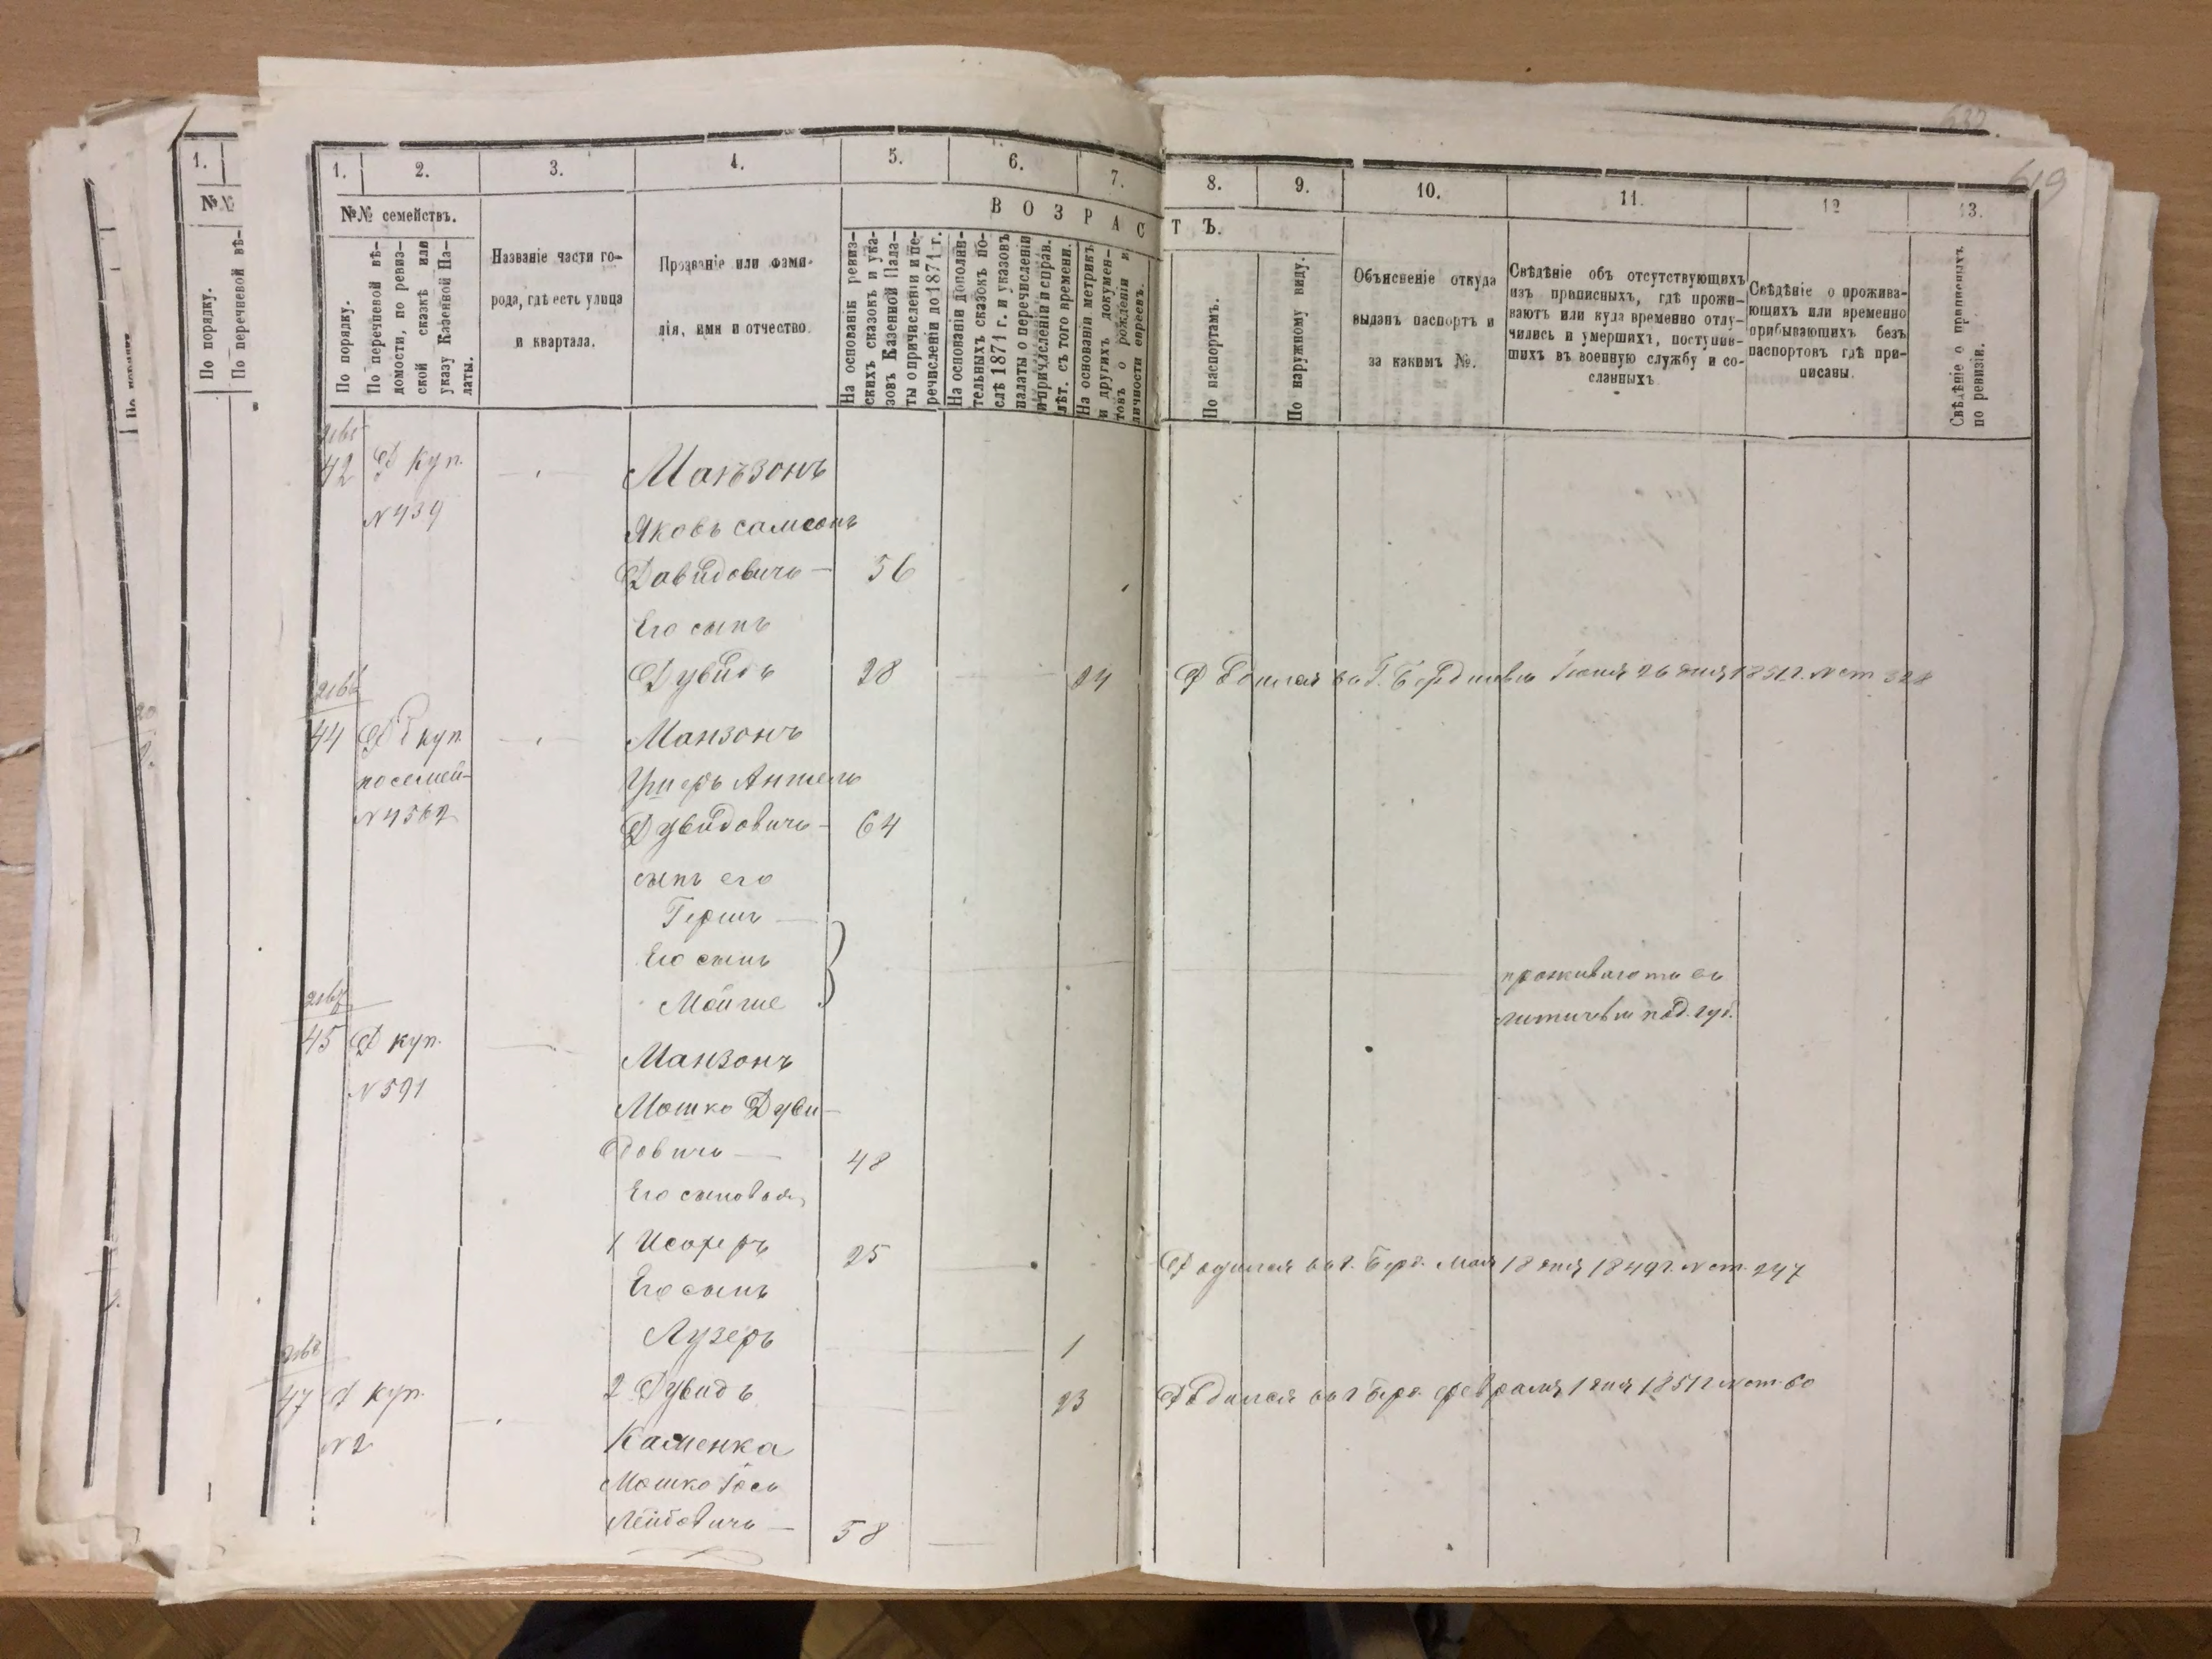 1.
№№
По порядку.
По перечневой вѣ-
1.
2.
3.
4.
5.
6.
7.
8.
9.
10.
11.
12
13.
619
№№ семействъ.
ВОЗРАС
ТЪ.
По порядку.
По перечневой вѣ-
домости, по ревиз-
ской сказкѣ или
указу Казенной Па-
латы.
Названіе части го-
рода, гдѣ есть улица
и квартала.
Прозваніе или фами-
лія, имя и отчество.
На основаніи ревиз-
скихъ сказокъ и ука-
зовъ Казенной Пала-
ты о причисленіи и пе-
речисленіи до 1871 г.
На основаніи дополни-
тельныхъ сказокъ по-
слѣ 1871 г. и указовъ
палаты о перечисленіи
и причисленіи и справ.
лѣт. съ того времени.
На основаніи метрикъ
и другихъ докумен-
товъ о рожденіи и
личности евреевъ.
По паспортамъ.
По наружному виду.
Объясненіе откуда
выданъ паспортъ и
за какимъ №.
Свѣдѣніе объ отсутствующихъ
изъ приписныхъ, гдѣ прожи-
ваютъ или куда временно отлу-
чились и умершихъ, поступив-
шихъ въ военную службу и со-
сланныхъ
Свѣдѣніе о прожива-
ющихъ или временно
прибывающихъ безъ
паспортовъ гдѣ при-
писаны.
Свѣдѣніе о приписныхъ
по ревизіи.
42 куп. Манзонъ
N 439
Яковъ Самсонъ
Давидовичъ — 56
Его сынъ
Дувидъ 28 24 въ Г. Бердичевѣ Іюня 26 дня 1851 г. N ст.
44 куп. Манзонъ
посемей-
N 4562
Антель
Дувидовичъ — 64
сынъ его
Гершъ —
Его сынъ проживаютъ въ
Мойше Литичевѣ под. губ.
45 куп. Манзонъ
N 591
Мошко Дуви-
довичъ — 48
Его сыновья,
1 Исаферъ 25 Родился въ г. Берд. Мая 18 дня 1849 г. N ст. 247
Его сынъ
Лузеръ 1
47 куп. 2 Дувидъ 23 Родился въ г. Берд. февраля 1 дня 1851 г. N ст. 60
N 2 Каменка
Мошко Іось
Лейбовичъ — 58